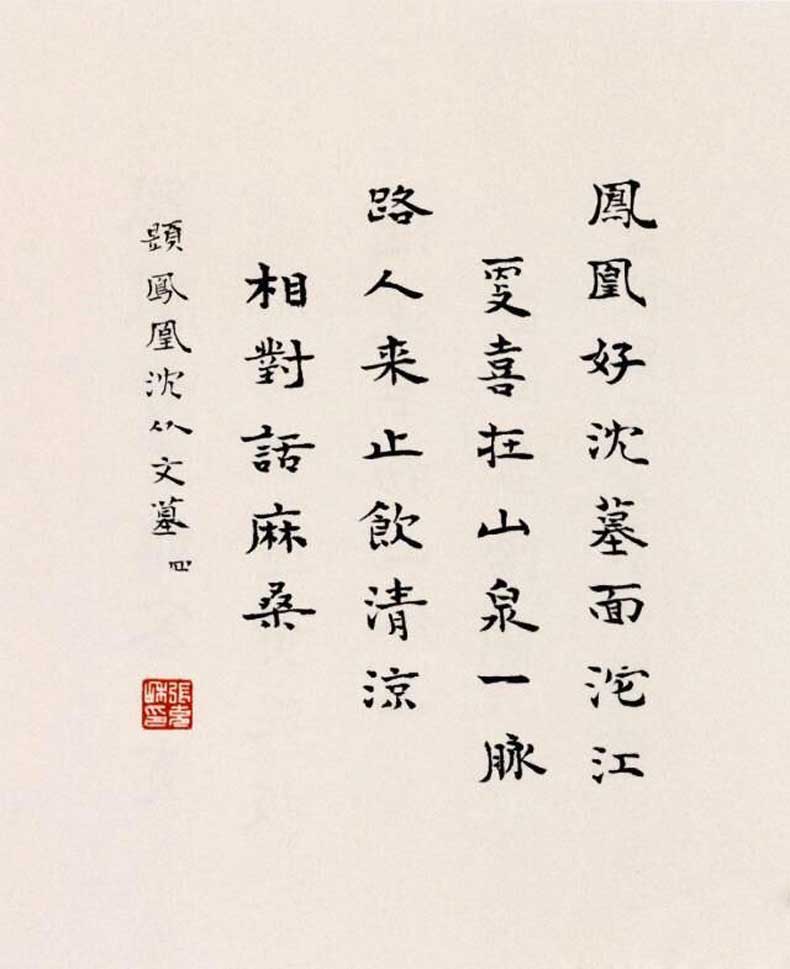 鳳凰好沈墓面沱江
更喜在山泉一脉
路人来止飲清涼
相對話麻桑
題鳳凰沈从文墓 四
張充和印